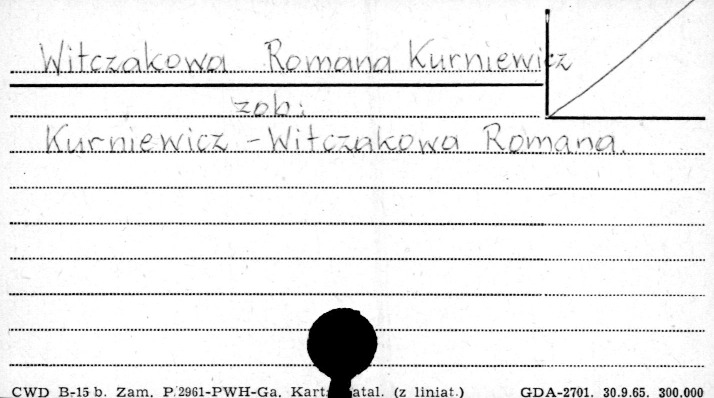 Witczakowa Romana Kurniewicz
zob:
Kurniewicz - Witczakowa Romana.
CWD B-15 b. Zam. P. 2961-PWH-Ga. Kart. atal. (z liniat.) GDA-2701. 30.9.65. 300.000